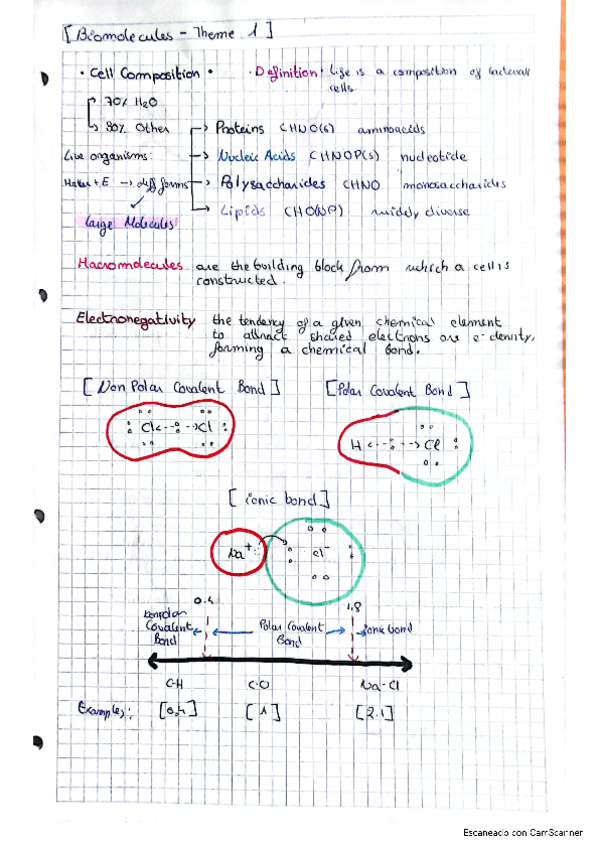 [Biomolecules - Theme 1]
• Cell Composition •
• Definition: Life is a composition of bacterial cells
70% H₂O
30% Other
Proteins CHNO(S) aminoacids
Live organisms:
Nucleic Acids CHNOP(S) nucleotide
Mater + E → diff forms
Polysaccharides CHNO monosaccharides
Lipids CHO(NP) widely diverse
Large Molecules
Macromolecules are the building block from which a cell is
constructed.
Electronegativity the tendency of a given chemical element
to attract shared electrons are e⁻ density,
forming a chemical bond.
[Non Polar Covalent Bond] [Polar Covalent Bond]
Cl <-- : --> Cl
H <-- : --> Cl
[ionic bond]
Na⁺ Cl⁻
0.4 1,8
nonpolar Covalent Bond
Polar Covalent Bond
ionic bond
C-H C-O Na-Cl
Examples: [0,4] [1] [2.1]
Escaneado con CamScanner